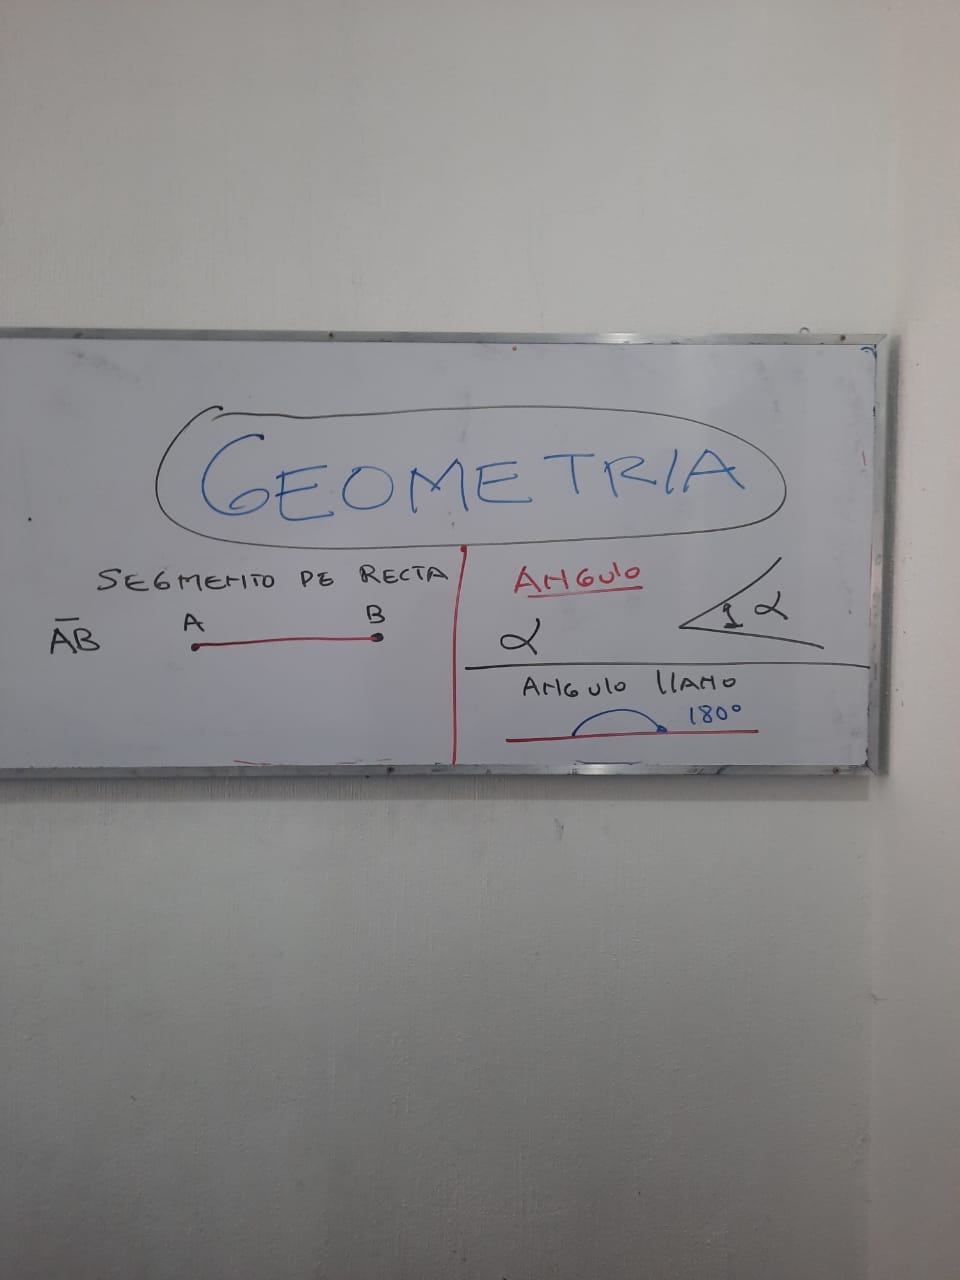 GEOMETRIA
SEGMENTO DE RECTA
A̅B̅
A B
ANGULO
α
1 α
ANGULO LLANO
180°